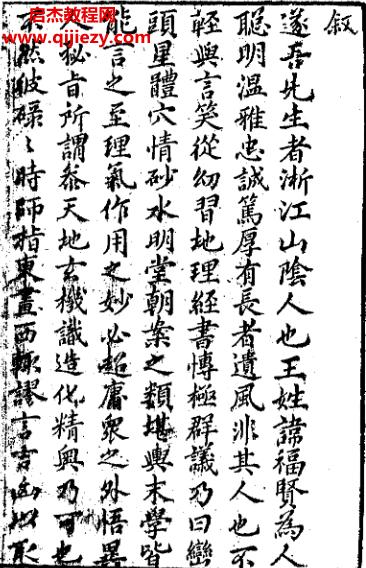 启杰教程网
www.qijiezy.com
叙
遂吾先生者浙江山陰人也王姓諱福賢為人
聰明溫雅忠誠篤厚有長者遺風非其人也不
輕與言笑從幼習地理经書慱極群議乃曰巒
頭星體穴情砂水明堂朝案之類堪輿末學皆
能言之至理氣作用之妙必超庸衆之外悟異
秘旨所謂叅天地玄機識造化精奥乃可也
不然彼碌〻時師指東畫西輒謬言吉凶以取